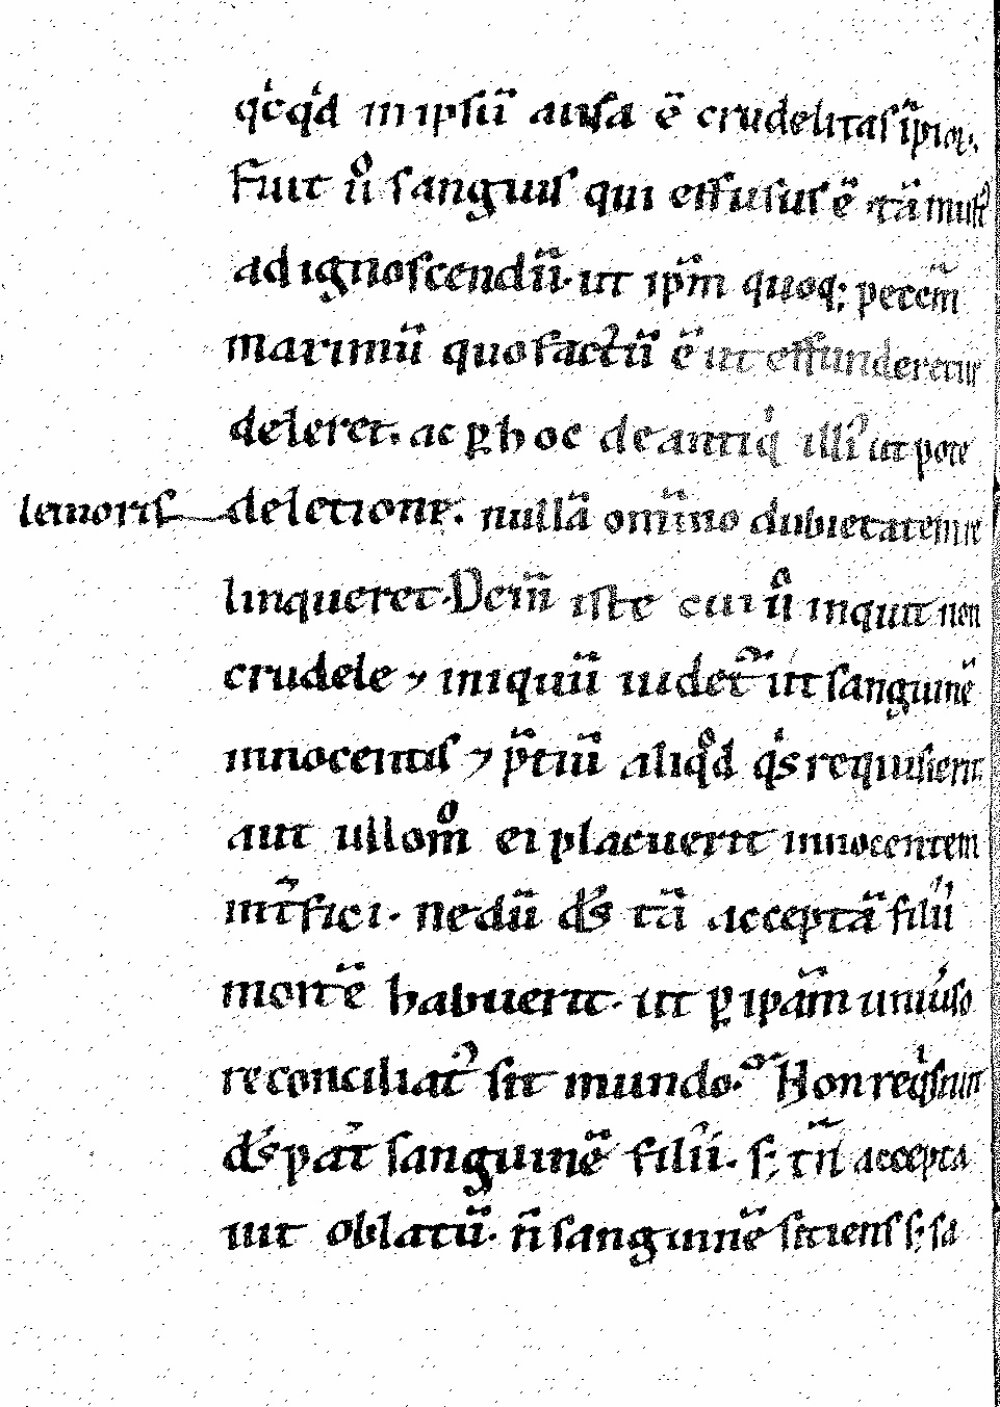 qͥcqͥd in ipsū ausa ē crudelitas īpioꝝ.
Fuit nͦ sanguis qui effusus ē. tā multꝰ
ad ignoscendū. ut ipm̄ quoq; peccm̄
maximū quo factū ē ut effunderetur
deleret. ac ꝑ hoc de antiqͥ illiꝰ utpote
leuioris deletione. nullā om̄ino dubietatem re
linqueret. Dein̄ iste cui nͦ inquit non
crudele ⁊ iniquū uidet᷑ ut sanguinē
innocentis ⁊ p̄tiū aliqͦd qͥs requisierit
aut ullo mͦ ei placuerit innocentem
int᷑fici. nedū ds̄ tā acceptā filii
mortē habuerit. ut ꝑ ipām uniuͥso
reconciliatꝰ sit mundo. Non reqͥsiuit
ds̄ pat᷑ sanguinē filii. s; tn̄ accepta
uit oblatū. n̄ sanguinē sitiens s; sa